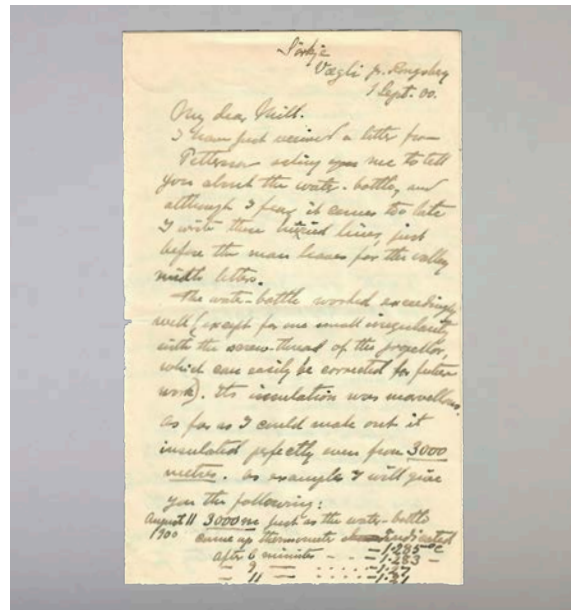 Sörkje
Vægli pr. Kongsberg
1 Sept. 00.
My dear Mill.
I have just received a letter from
Pettersson asking me to tell
you about the water-bottle, and
although I fear it comes too late
I write these hurried lines, just
before the man leaves for the valley
with letters.
The water-bottle worked exceedingly
well (except for one small irregularity
with the screw-thread of the propellor,
which can easily be corrected for future
work). Its insulation was marvellous.
as far as I could make out it
insulated perfectly even from 3000
metres. as example I will give
you the following:
August 11 3000 m just as the water-bottle
1900 came up thermometer indicated
-1.285 °C
after 6 minutes - - -1.283 -
- 9 - . . . . . -1.27
- 11 - . . . . -1.27